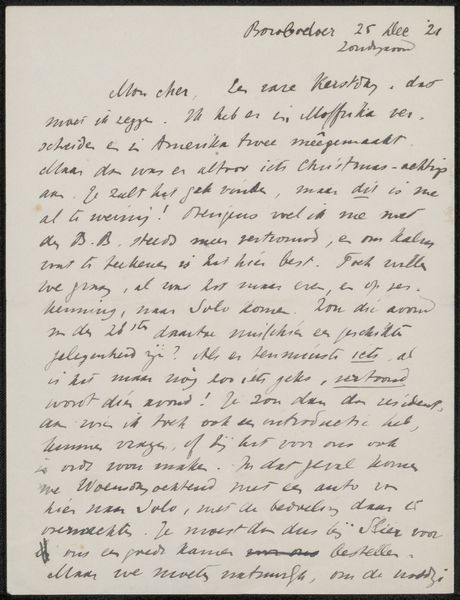 Boroboedoer 25 Dec '21
Zondagavond
Mon cher, Een rare Kerstdag, dat
moet ik zeggen. Ik heb er in Moffrika ver-
scheiden en in Amerika twee meêgemaakt.
Maar dan was er altoos iets Christmas-achtigs
aan. Je zult het gek vinden, maar dit is me
al te weinig! Overigens voel ik me met
den B.B. steeds meer vertrouwd, en om kalm
wat te teekenen is het hier best. Toch willen
we graag, al was het maar even, en op ver-
kenning, naar Solo komen. Zou die avond
van den 28sten daartoe misschien een geschikte
gelegenheid zijn? Als er tenminste iets, al
is het maar nòg zoo iets geks, vertoond
wordt dien avond! Je zou dan den resident,
aan wien ik toch ook een introductie heb,
kunnen vragen, of hij het voor ons ook
in orde zou maken. In dat geval komen
we Woensdagochtend met een auto van
hier naar Solo, met de bedoeling daar te
overnachten. Je moest dan dus bij Slier voor
ons een goede kamer bestellen.
Maar we moeten natuurlijk, om de noodige